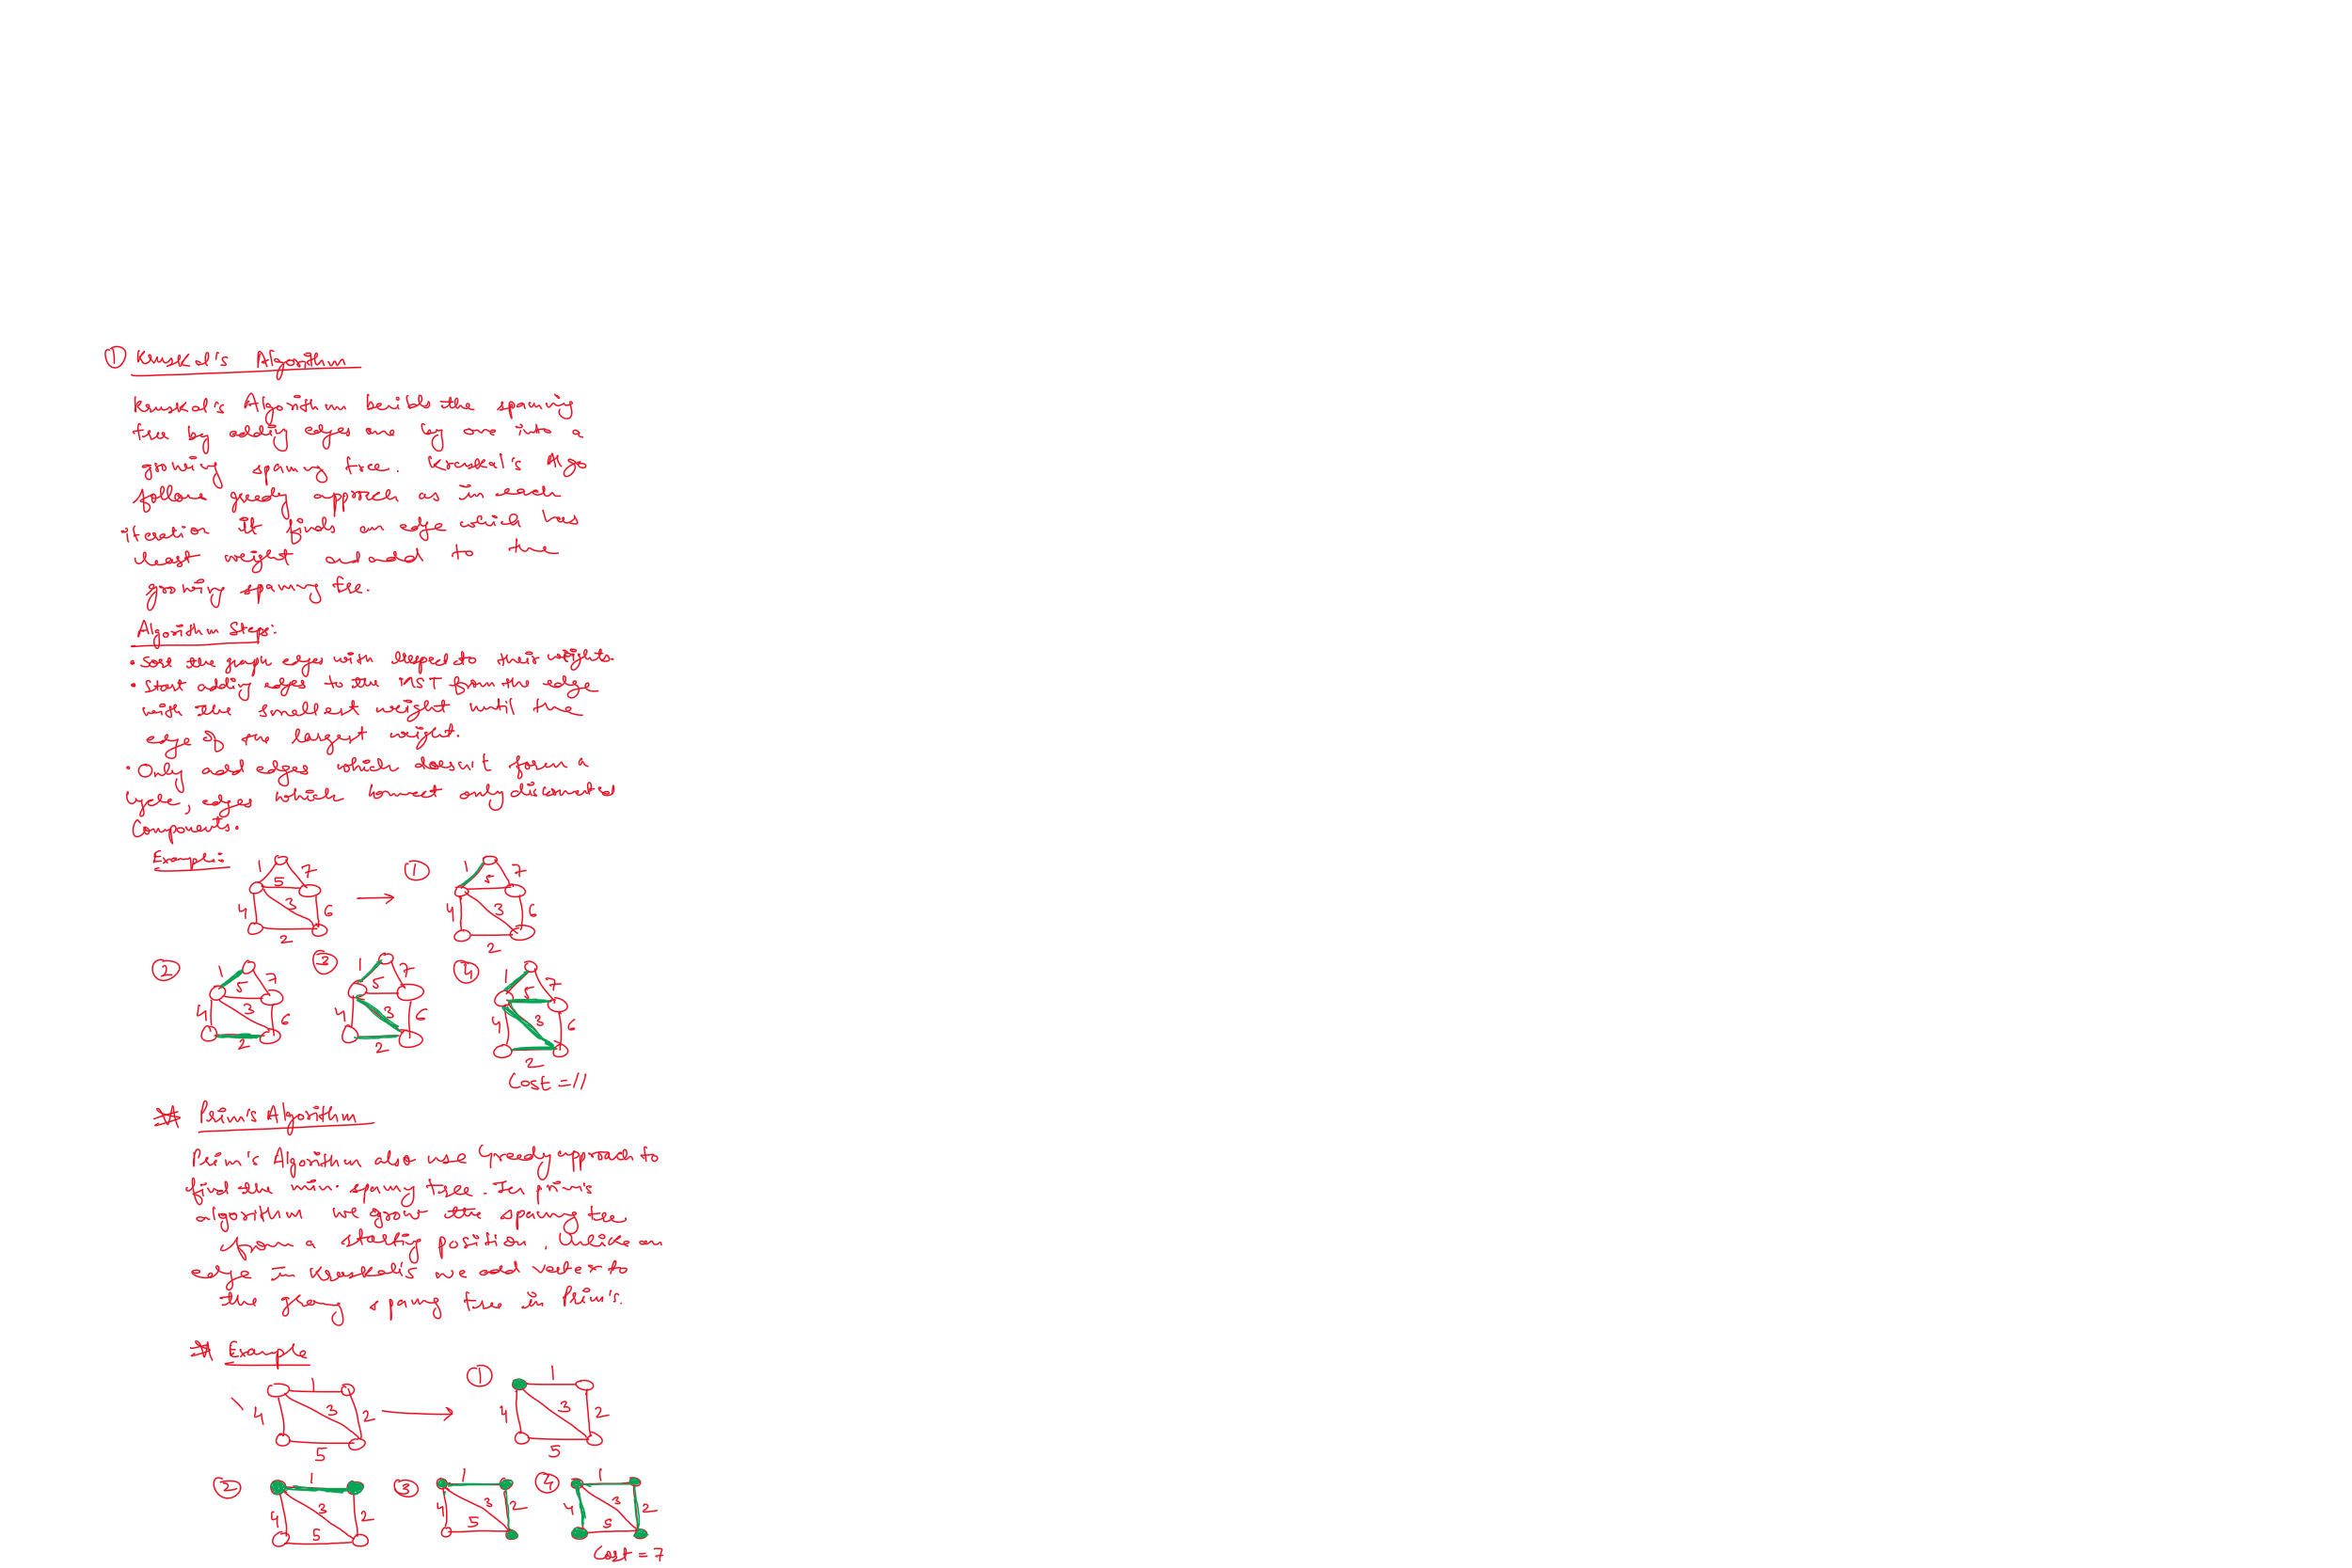 ① Kruskal's Algorithm
Kruskal's Algorithm builds the spaning
tree by adding edges one by one into a
growing spaning tree. Kruskal's Algo
follows greedy approch as in each
iteration it finds an edge which has
least weight and add to the
growing spaning tee.
Algorithm Steps:
• Sort the graph edges with respect to their weights.
• Start adding edges to the MST from the edge
with the smallest weight until the
edge of the largest weight.
• Only add edges which doesn't form a
cycle, edges which connect only disconnected
Components.
Example: 1 7 5 4 3 6 2 → ① 1 7 5 4 3 6 2
② 1 7 5 4 3 6 2 ③ 1 7 5 4 3 6 2 ④ 1 7 5 4 3 6 2
Cost = 11
Prim's Algorithm
Prim's Algorithm also use Greedy approach to
find the min. spaning tree. In prim's
algorithm we grow the spaning tee
from a starting position. Unlike an
edge in Kruskal's we add vertex to
the spaing tree in Prim's.
Example
1 4 3 2 5 → ① 1 4 3 2 5
② 1 4 3 2 5 ③ 1 4 3 2 5 ④ 1 4 3 2 5
Cost = 7